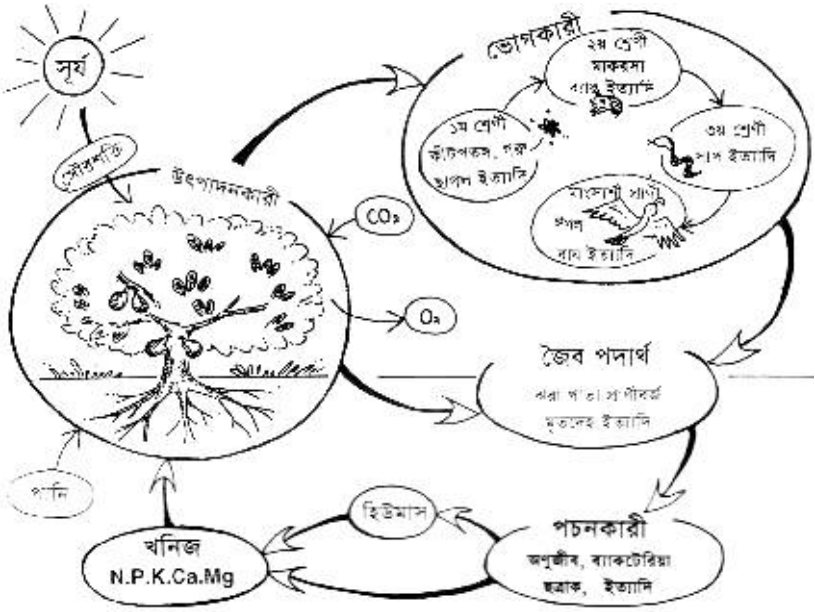 সূর্য
সৌরশক্তি
উৎপাদনকারী
CO₂
O₂
পানি
ভোগকারী
১ম শ্রেণী
কীটপতঙ্গ, গরু
ছাগল ইত্যাদি
২য় শ্রেণী
মাকরসা
ব্যাঙ ইত্যাদি
৩য় শ্রেণী
সাপ ইত্যাদি
মাংসাশী প্রাণী
ঈগল
বাঘ ইত্যাদি
জৈব পদার্থ
ঝরা পাতা প্রাণীবর্জ
মৃতদেহ ইত্যাদি
পচনকারী
অণুজীব, ব্যাকটেরিয়া
ছত্রাক, ইত্যাদি
হিউমাস
খনিজ
N.P.K.Ca.Mg